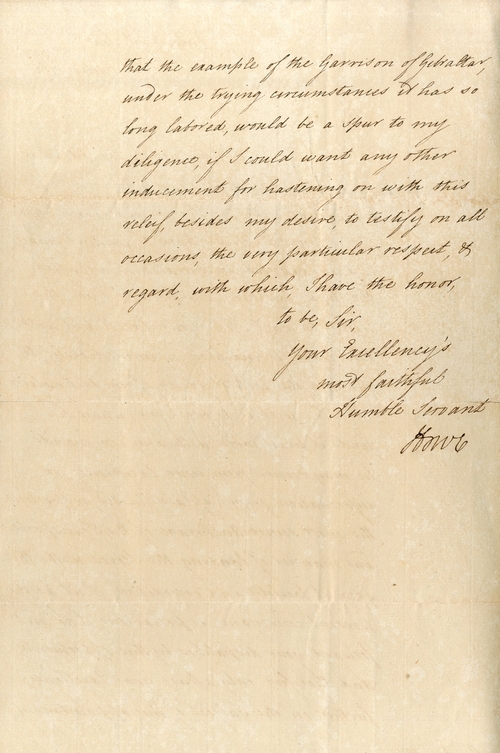 that the example of the Garrison of Gibraltar,
under the trying circumstances it has so
long labored, would be a spur to my
diligence, if I could want any other
inducement for hastening on with this
releif, besides my desire, to testify on all
occasions, the very particular respect, &
regard, with which, I have the honor,
to be, Sir,
Your Excellency's
most faithful
Humble Servant
Howe